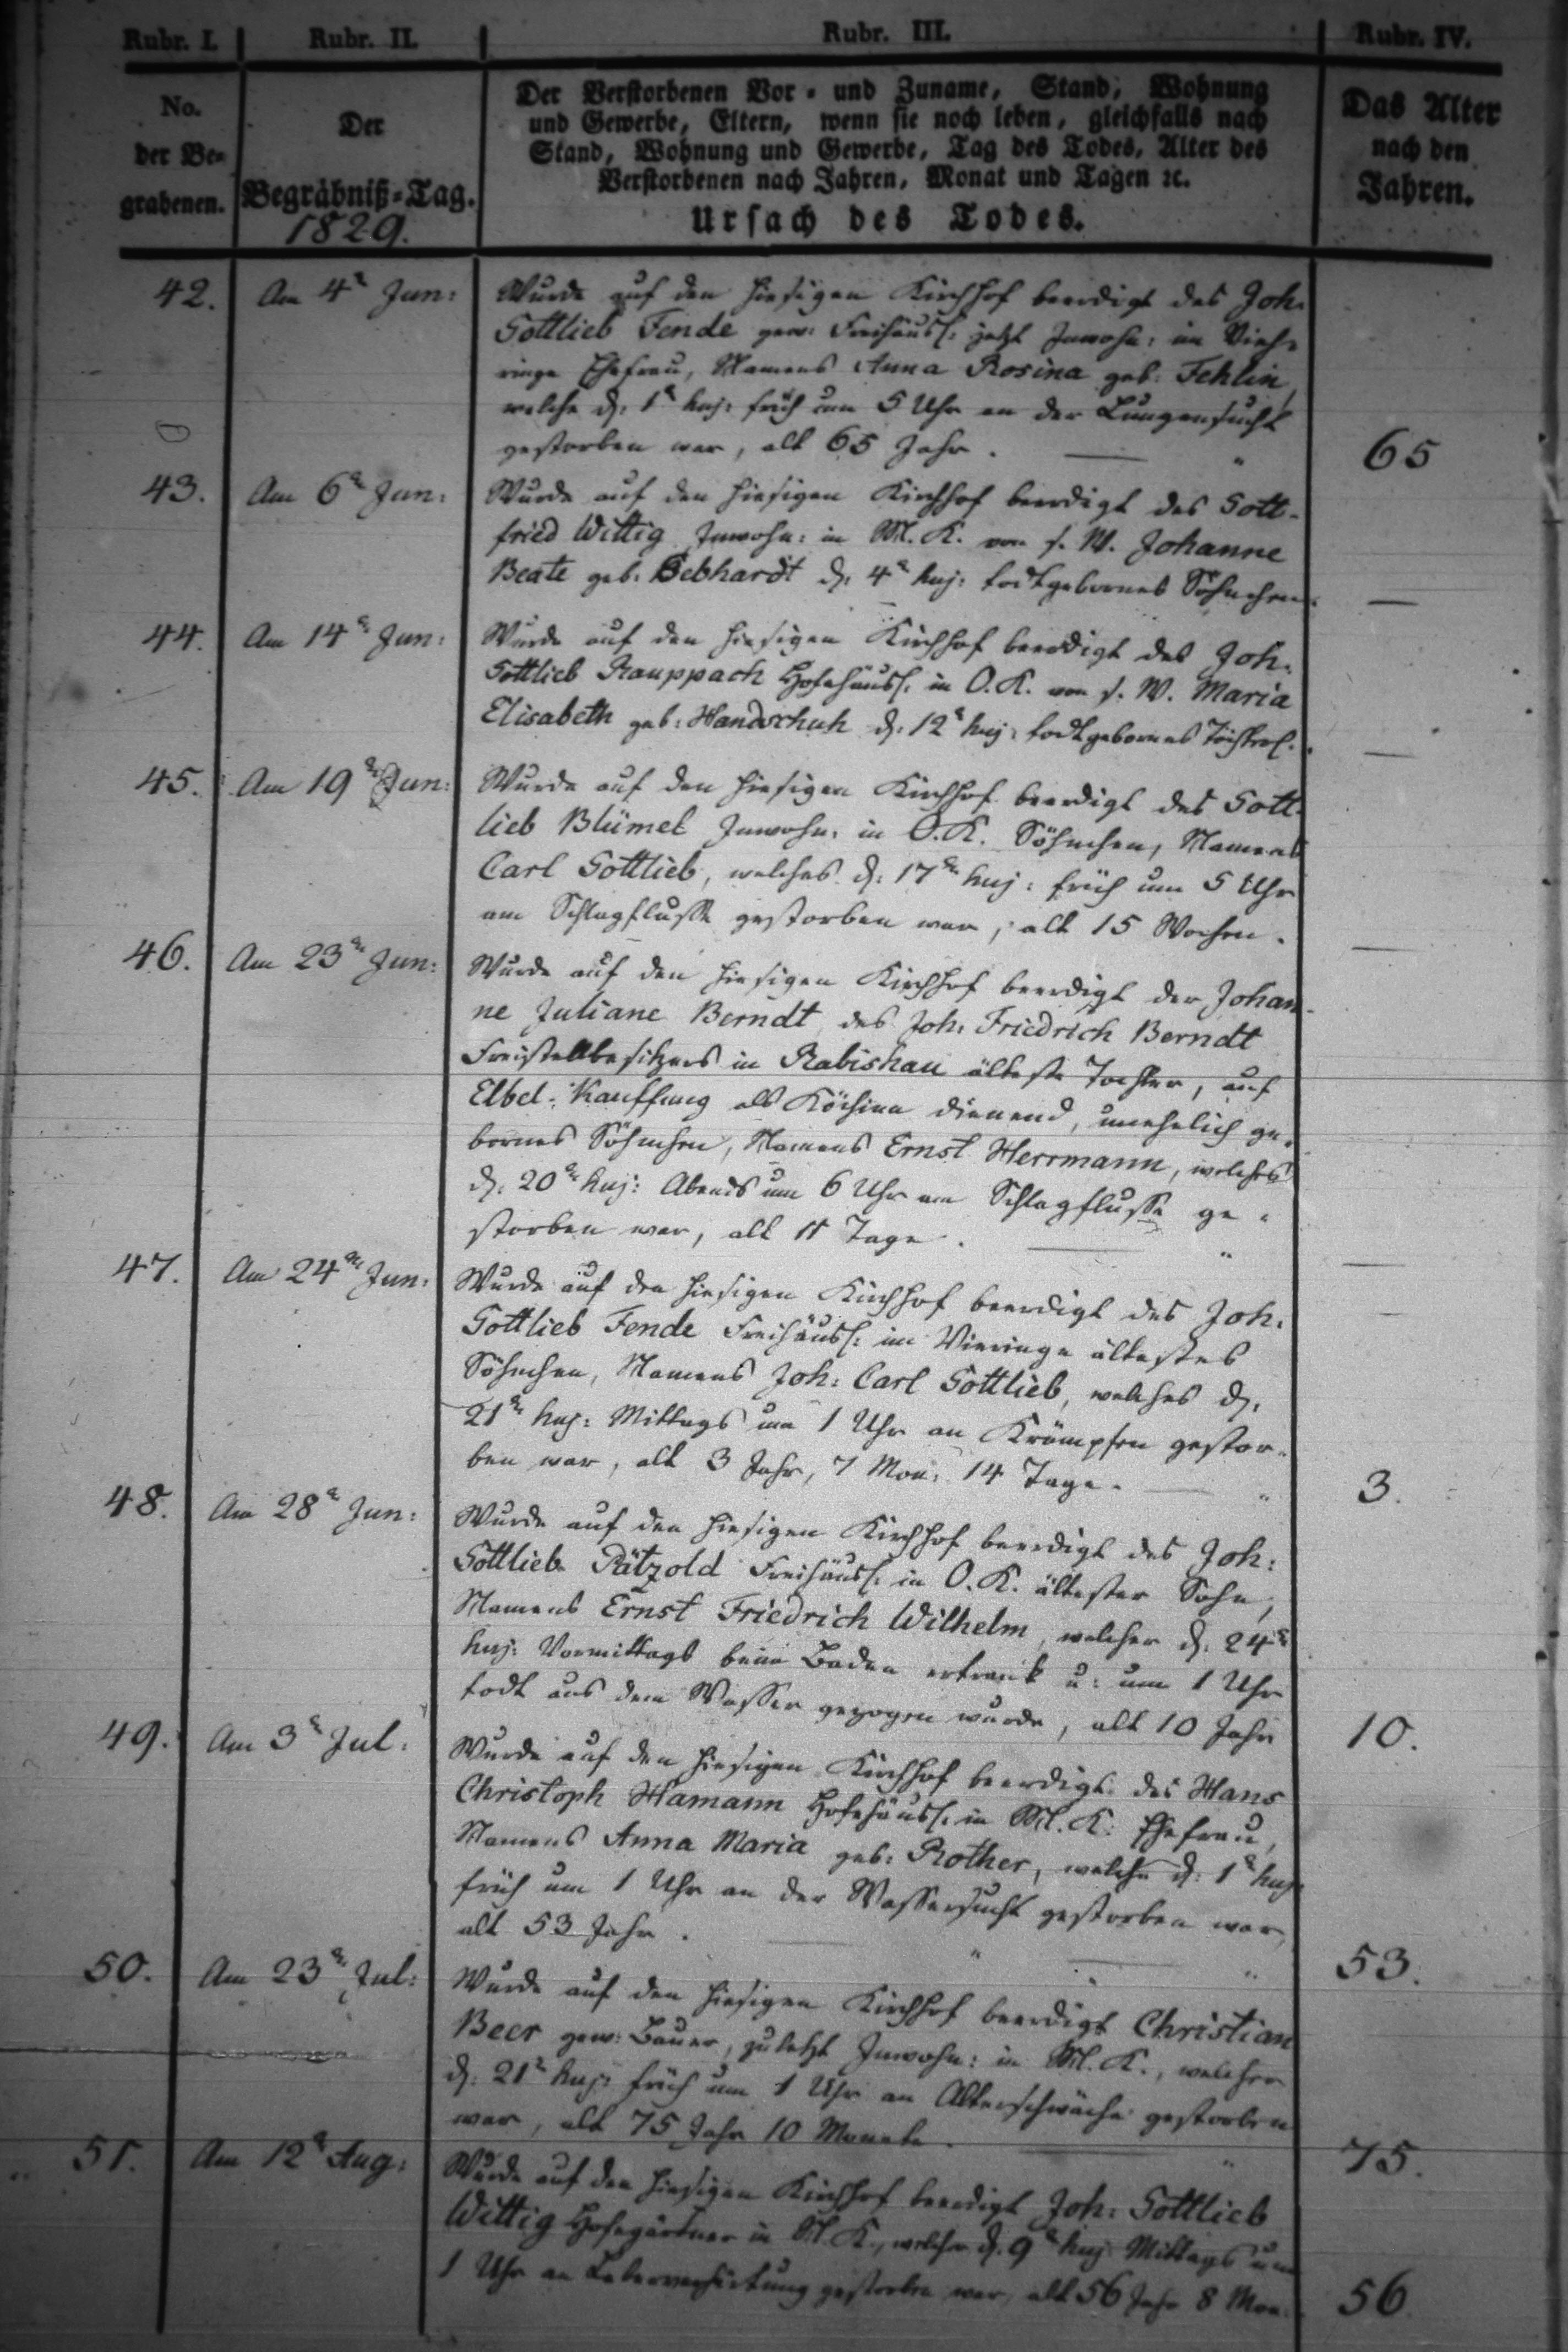 Rubr. I. Rubr. II. Rubr. III. Rubr. IV.
No.
der Be=
grabenen.
Der
Begräbniß=Tag.
1829.
Der Verstorbenen Vor = und Zuname, Stand, Wohnung
und Gewerbe, Eltern, wenn sie noch leben, gleichfalls nach
Stand, Wohnung und Gewerbe, Tag des Todes, Alter des
Verstorbenen nach Jahren, Monat und Tagen ꝛc.
Ursach des Todes.
Das Alter
nach den
Jahren.
42. Am 4t Jun: Wurde auf den hiesigen Kirchhof beerdigt des Joh.
Gottlieb Fende gew: Freihäusl: jetzt Inwohn: im Vieh-
ringe Ehefrau, Namens Anna Rosina geb: Fehlin,
welche d: 1t huj: früh um 5 Uhr an der Lungensucht
gestorben war, alt 65 Jahr. 65
43. Am 6t Jun: Wurde auf den hiesigen Kirchhof beerdigt des Gott-
fried Wittig Inwohn: in M. K. von s. W. Johanne
Beate geb: Gebhardt d: 4t huj: todtgebornes Söhnchen. —
44. Am 14t Jun: Wurde auf den hiesigen Kirchhof beerdigt des Joh:
Gottlieb Rauppach Hofehäusl: in O. K. von s. W. Maria
Elisabeth geb: Handschuh d: 12t huj: todtgebornes Töchterl. —
45. Am 19tn Jun: Wurde auf den hiesigen Kirchhof beerdigt des Gott-
lieb Blümel Inwohn: in O. K. Söhnchen, Namens
Carl Gottlieb, welches d: 17tn huj: früh um 5 Uhr
am Schlagflusse gestorben war, alt 15 Wochen. —
46. Am 23tn Jun: Wurde auf den hiesigen Kirchhof beerdigt der Johan-
ne Juliane Berndt des Joh: Friedrich Berndt
Freistellbesitzers in Rabishau älteste Tochter, auf
Elbel-Kauffung als Köchinn dienend, unehelich ge-
bornes Söhnchen, Namens Ernst Herrmann, welches
d: 20tn huj: Abends um 6 Uhr am Schlagflusse ge-
storben war, alt 11 Tage. —
47. Am 24tn Jun: Wurde auf den hiesigen Kirchhof beerdigt des Joh:
Gottlieb Fende Freihäusl: im Vieringe ältestes
Söhnchen, Namens Joh: Carl Gottlieb, welches d:
21tn huj: Mittags um 1 Uhr an Krämpfen gestor-
ben war, alt 3 Jahr, 7 Mon: 14 Tage. 3.
48. Am 28t Jun: Wurde auf den hiesigen Kirchhof beerdigt des Joh:
Gottlieb Pätzold Freihäusl: in O. K. ältester Sohn,
Namens Ernst Friedrich Wilhelm, welcher d: 24t
huj: Vormittags beim Baden ertrank u: um 1 Uhr
todt aus dem Wasser gezogen wurde, alt 10 Jahr 10.
49. Am 3t Jul: Wurde auf den hiesigen Kirchhof beerdigt des Hans
Christoph Hamann Hofehäusl: in M. K. Ehefrau,
Namens Anna Maria geb: Rother, welche d: 1t huj:
früh um 1 Uhr an der Wassersucht gestorben war,
alt 53 Jahr. 53.
50. Am 23t Jul: Wurde auf den hiesigen Kirchhof beerdigt Christian
Beer gew: Bauer, zuletzt Inwohn: in M. K., welcher
d: 21t huj: früh um 1 Uhr an Altersschwäche gestorben
war, alt 75 Jahr 10 Monate. 75.
51. Am 12t Aug: Wurde auf den hiesigen Kirchhof beerdigt Joh: Gottlieb
Wittig Hofegärtner in M. K., welcher d. 9t huj: Mittags um
1 Uhr an Leberverhärtung gestorben war, alt 56 Jahr 8 Mon: 56